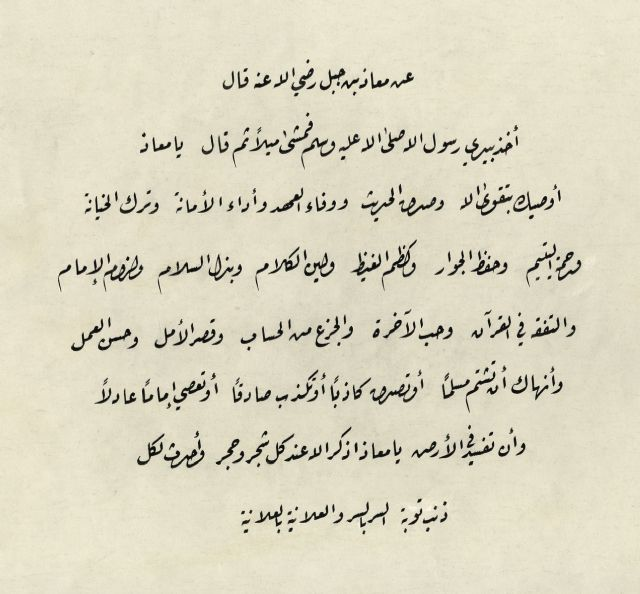 عن معاذ بن جبل رضي الله عنه قال
أخذ بيدي رسول الله صلى الله عليه وسلم فمشى ميلاً ثم قال يا معاذ
أوصيك بتقوى الله وصدق الحديث ووفاء العهد وأداء الأمانة وترك الخيانة
ورحمة اليتيم وحفظ الجوار وكظم الغيظ ولين الكلام وبذل السلام ولزوم الإمام
والتفقه في القرآن وحب الآخرة والجزع من الحساب وقصر الأمل وحسن العمل
وأنهاك أن تشتم مسلماً أو تصدق كاذباً أو تكذب صادقاً أو تعصي إماماً عادلاً
وأن تفسد في الأرض يا معاذ اذكر الله عند كل شجر وحجر وأحدث لكل
ذنب توبة السر بالسر والعلانية بالعلانية